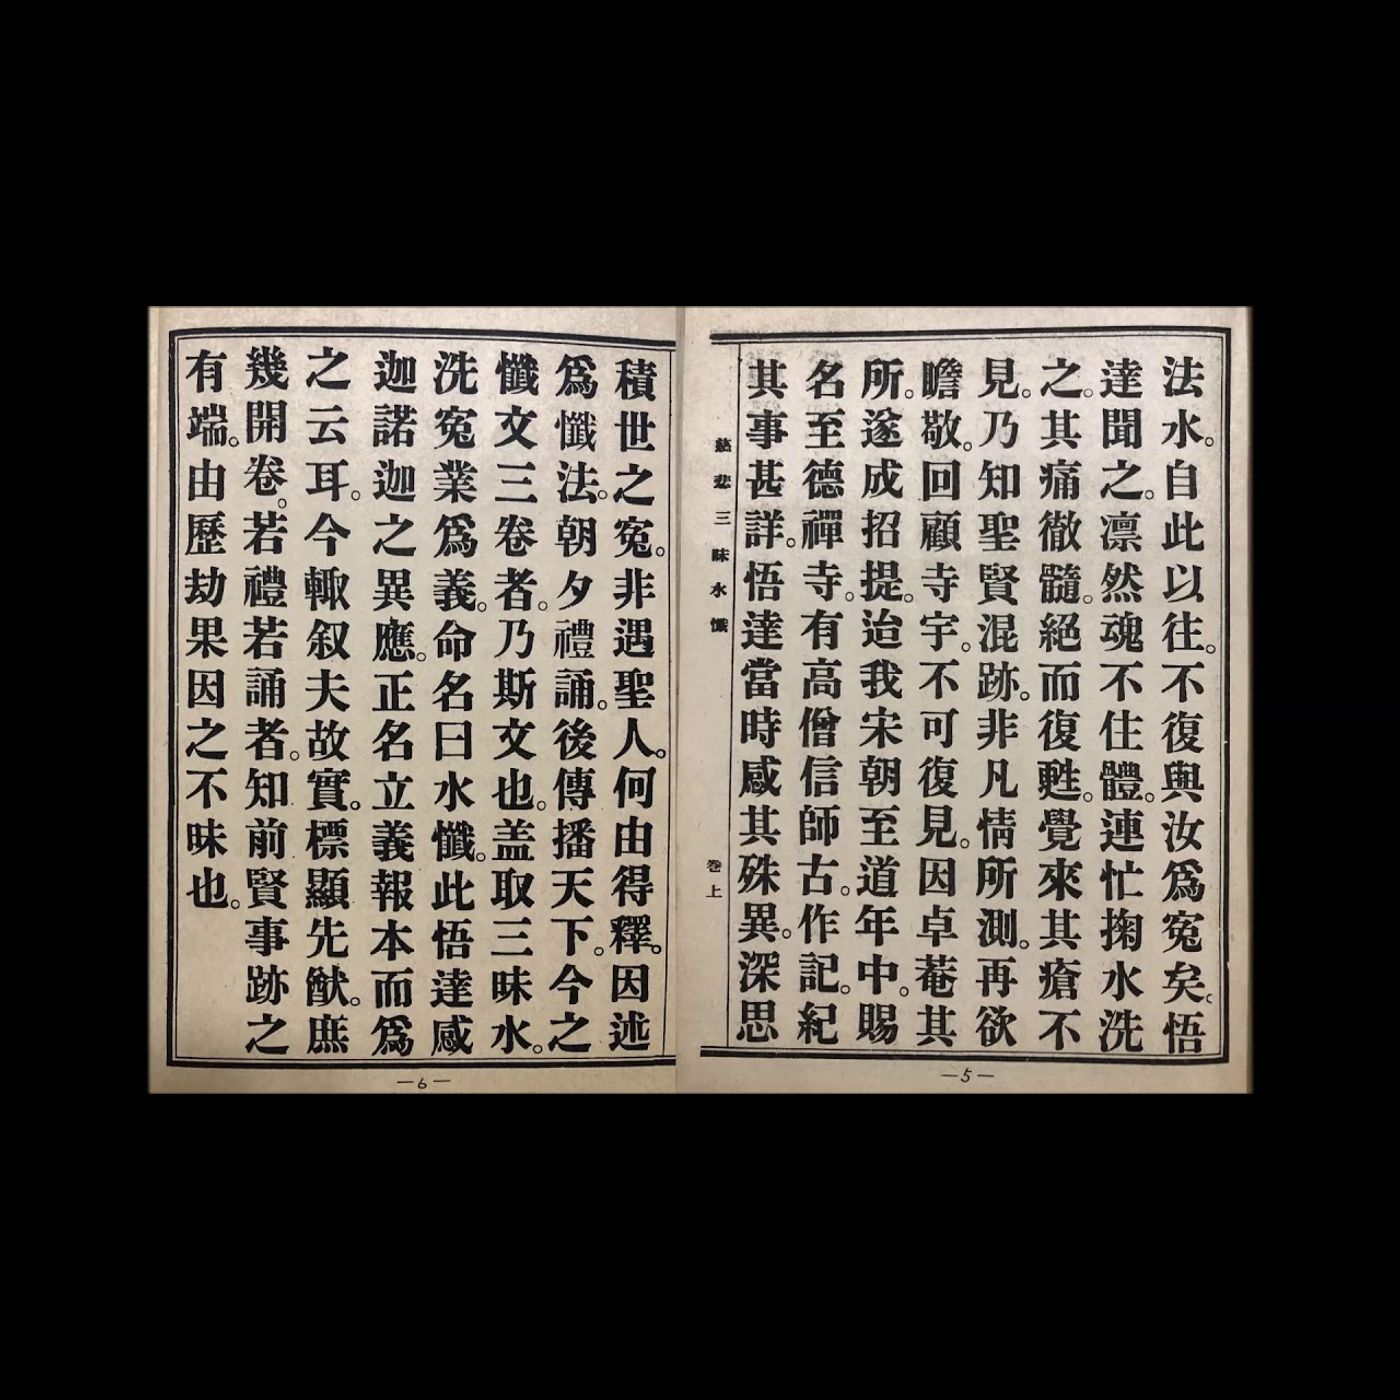 法水。自此以往。不復與汝爲寃矣。悟
達聞之。凛然魂不住體。連忙掬水洗
之。其痛徹髓。絕而復甦。覺來其瘡不
見。乃知聖賢混跡。非凡情所測。再欲
瞻敬。回顧寺宇。不可復見。因卓菴其
所。遂成招提。迨我宋朝至道年中。賜
名至德禪寺。有高僧信師古。作記。紀
其事甚詳。悟達當時感其殊異。深思
慈悲三昧水懺 卷上
—5—
積世之寃。非遇聖人。何由得釋。因述
爲懺法。朝夕禮誦。後傳播天下。今之
懺文三卷者。乃斯文也。盖取三昧水。
洗寃業爲義。命名曰水懺。此悟達感
迦諾迦之異應。正名立義報本而爲
之云耳。今輙叙夫故實。標顯先猷。庶
幾開卷。若禮若誦者。知前賢事跡之
有端。由歷劫果因之不昧也。
—6—